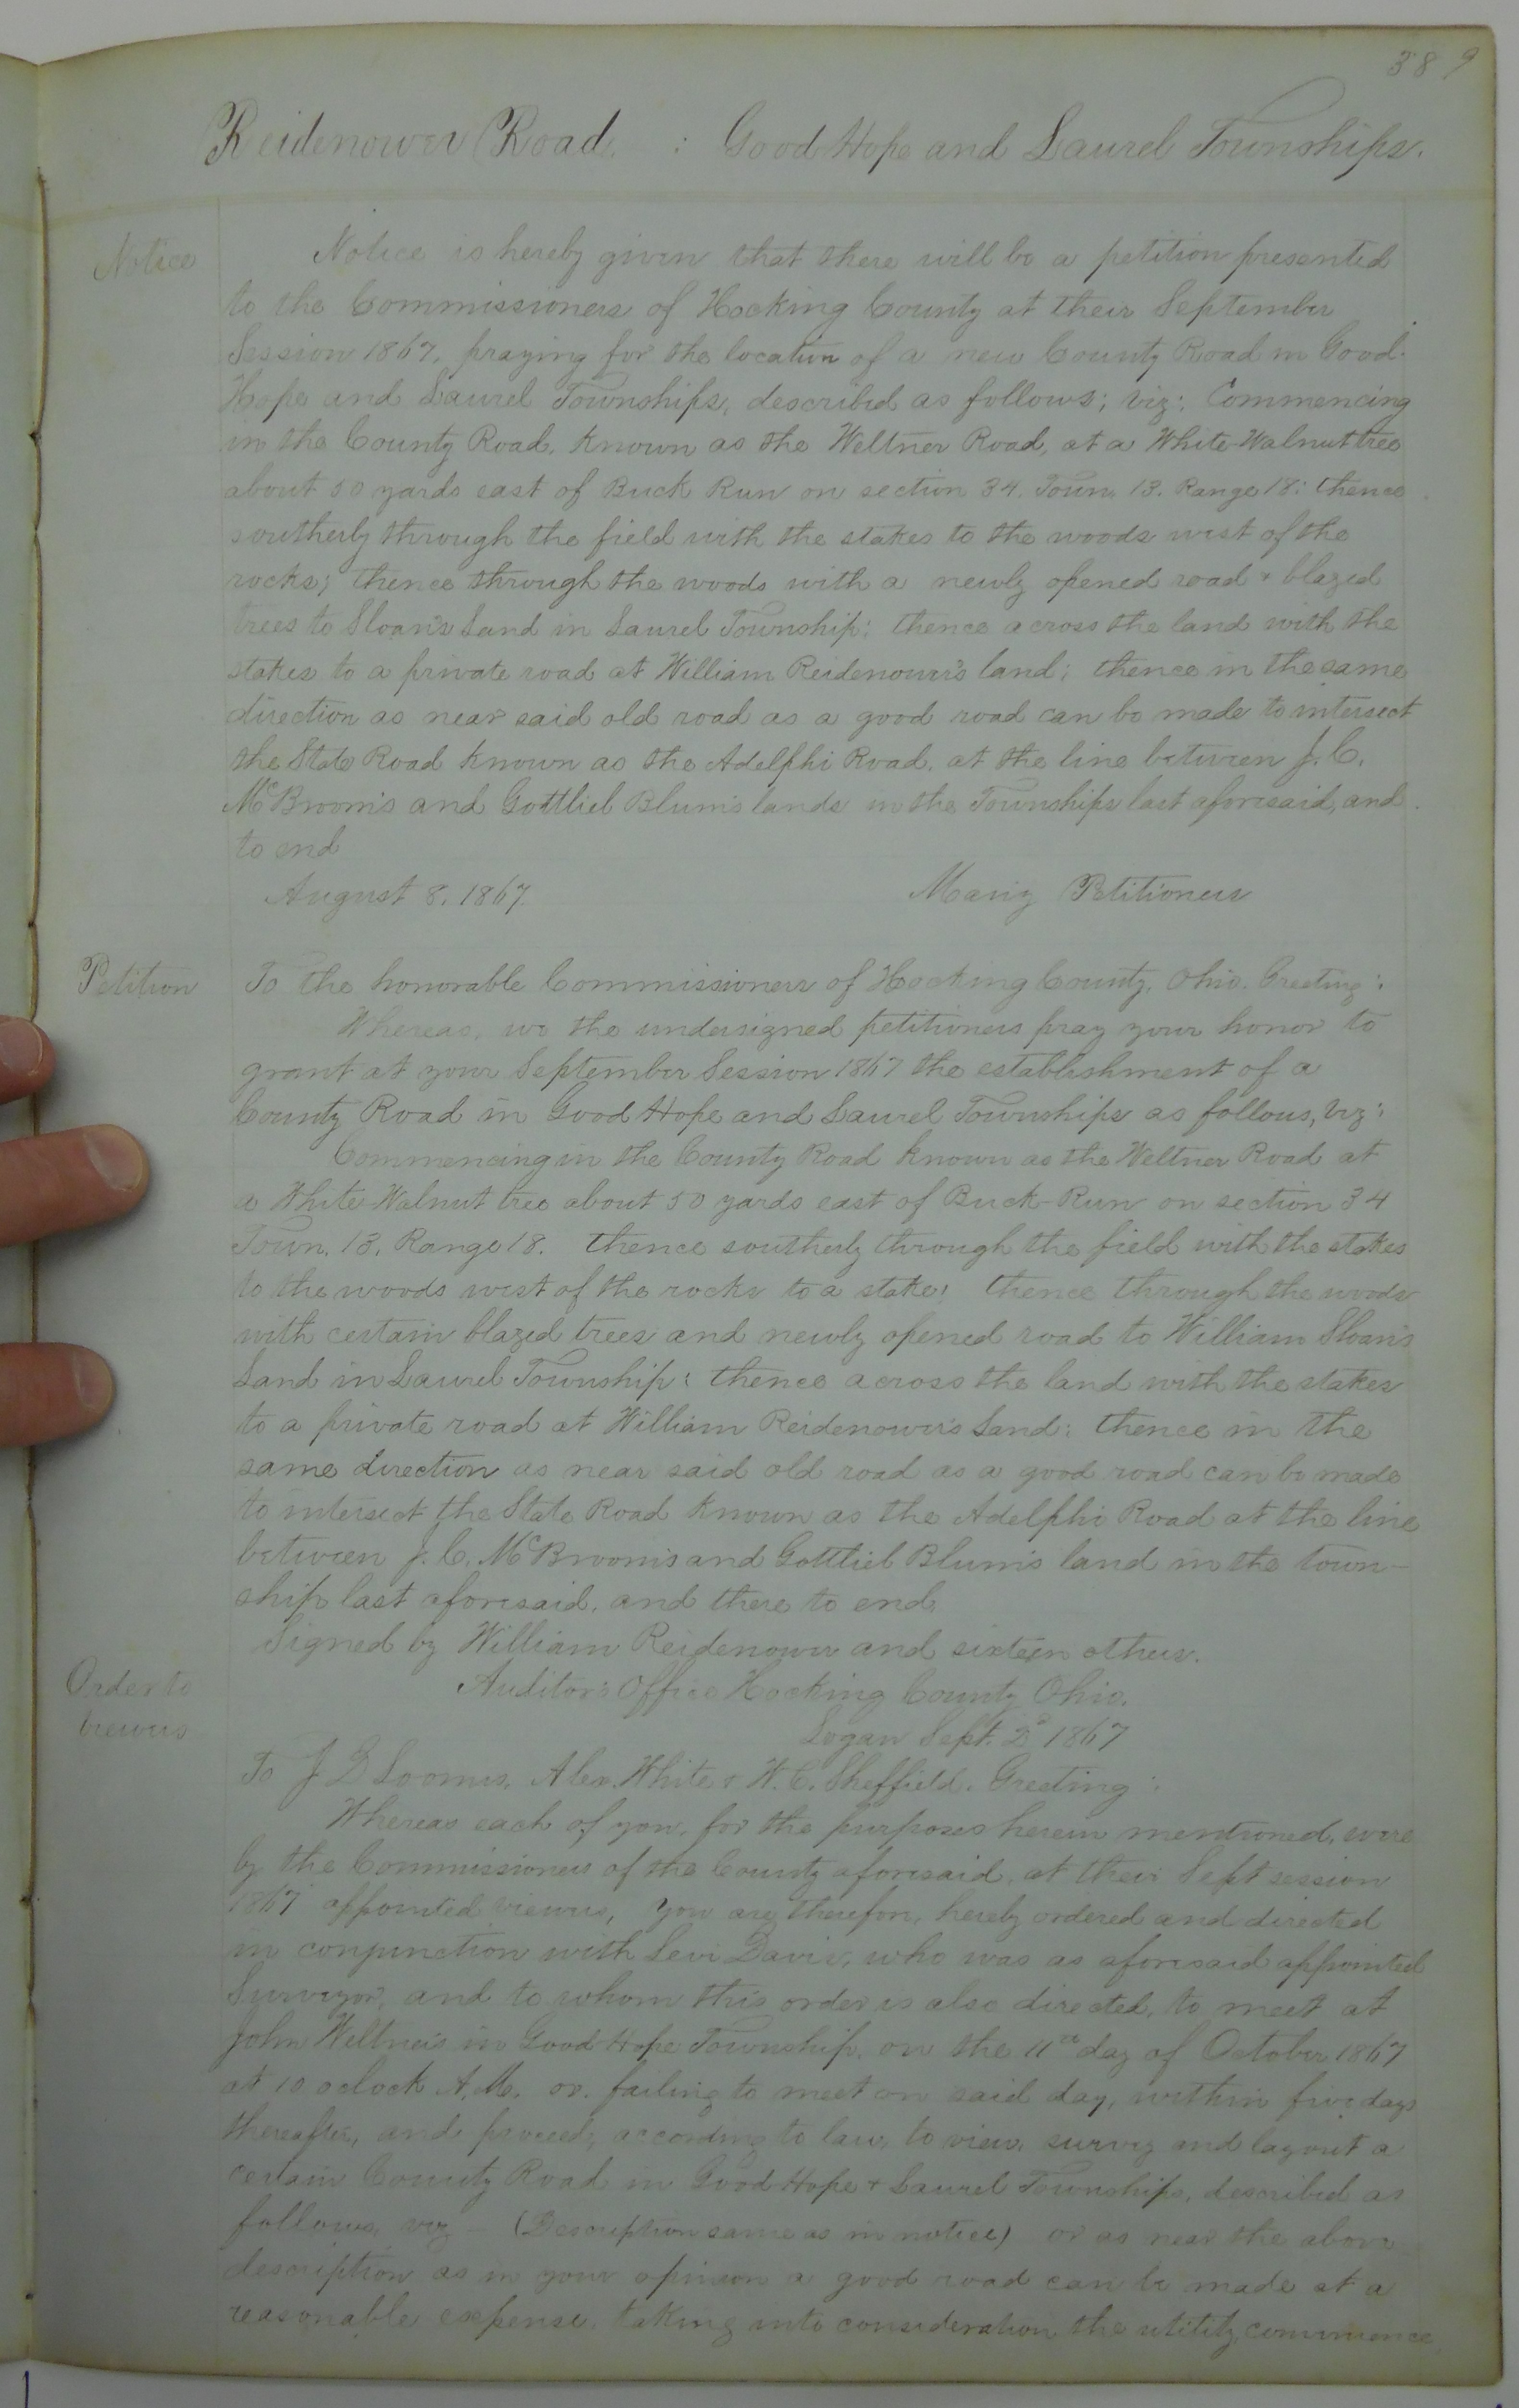 389
Reidenower Road. : Good Hope and Laurel Townships.
Notice
Notice is hereby given that there will be a petition presented
to the Commissioners of Hocking County at their September
Session 1867, praying for the location of a new County Road in Good-
Hope and Laurel Townships, described as follows; viz: Commencing
in the County Road, known as the Weltner Road, at a White-Walnut tree
about 50 yards east of Buck Run on section 34. Town. 13. Range 18: thence
southerly through the field with the stakes to the woods west of the
rocks; thence through the woods with a newly opened road & blazed
trees to Sloan's Land in Laurel Township; thence across the land with the
stakes to a private road at William Reidenower's land; thence in the same
direction as near said old road as a good road can be made to intersect
the State Road known as the Adelphi Road, at the line between J. C.
McBroom's and Gottlieb Blum's lands in the Townships last aforesaid, and
to end
August 8, 1867. Many Petitioners
Petition
To the honorable Commissioners of Hocking County, Ohio. Greeting:
Whereas, we the undersigned petitioners pray your honor to
grant at your September Session 1867 the establishment of a
County Road in Good Hope and Laurel Townships as follows, viz:
Commencing in the County Road known as the Weltner Road at
a White Walnut tree about 50 yards east of Buck-Run on section 34
Town. 13, Range 18. thence southerly through the field with the stakes
to the woods west of the rocks to a stake; thence through the woods
with certain blazed trees and newly opened road to William Sloan's
Land in Laurel Township; thence across the land with the stakes
to a private road at William Reidenower's Land; thence in the
same direction as near said old road as a good road can be made
to intersect the State Road known as the Adelphi Road at the line
between J. C. McBroom's and Gottlieb Blum's land in the town-
ship last aforesaid, and there to end.
Signed by William Reidenower and sixteen others.
Order to
viewers
Auditor's Office Hocking County Ohio.
Logan Sept. 1867
To J D Loomis, Alex. White & H. C. Sheffield. Greeting:
Whereas each of you, for the purposes herein mentioned, were
by the Commissioners of the County aforesaid, at their Sept session
1867 appointed viewers, you are, therefore, hereby ordered and directed
in conjunction with Levi Davis, who was as aforesaid appointed
Surveyor, and to whom this order is also directed, to meet at
John Weltner's in Good Hope Township, on the 11th day of October 1867
at 10 oclock A.M. or, failing to meet on said day, within five days
thereafter, and proceed, according to law, to view, survey and lay out a
certain County Road in Good Hope & Laurel Townships, described as
follows, viz - (Description same as in notice) or as near the above
description as in your opinion a good road can be made at a
reasonable expense, taking into consideration the utility, convenience